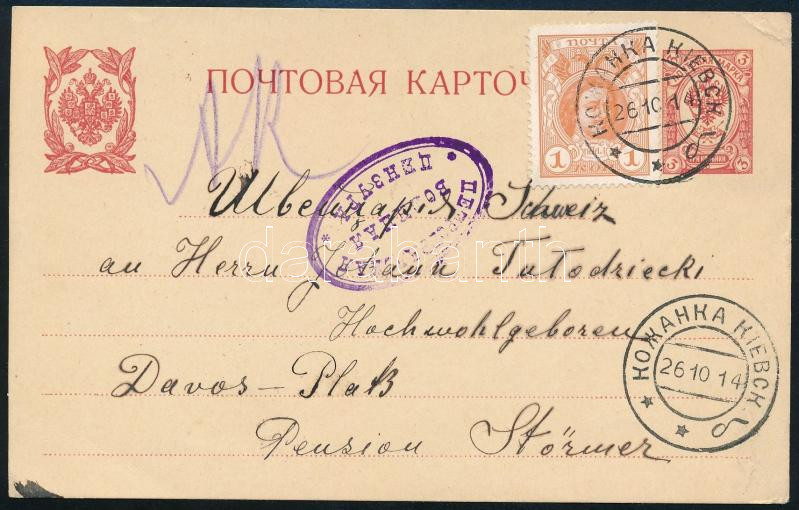 ПОЧТОВАЯ КАРТОЧ
ПОЧТА
1 1
3 3
КОЖАНКА КІЕВСК
26 10 14
ВОЕННАЯ
ЦЕНЗУРА
Швейцарія Schweiz
an Herrn Johann Tutodriecki
Hochwohlgeboren
Davos – Platz
Pension Störmer
КОЖАНКА КІЕВСК
26 10 14
darabanth